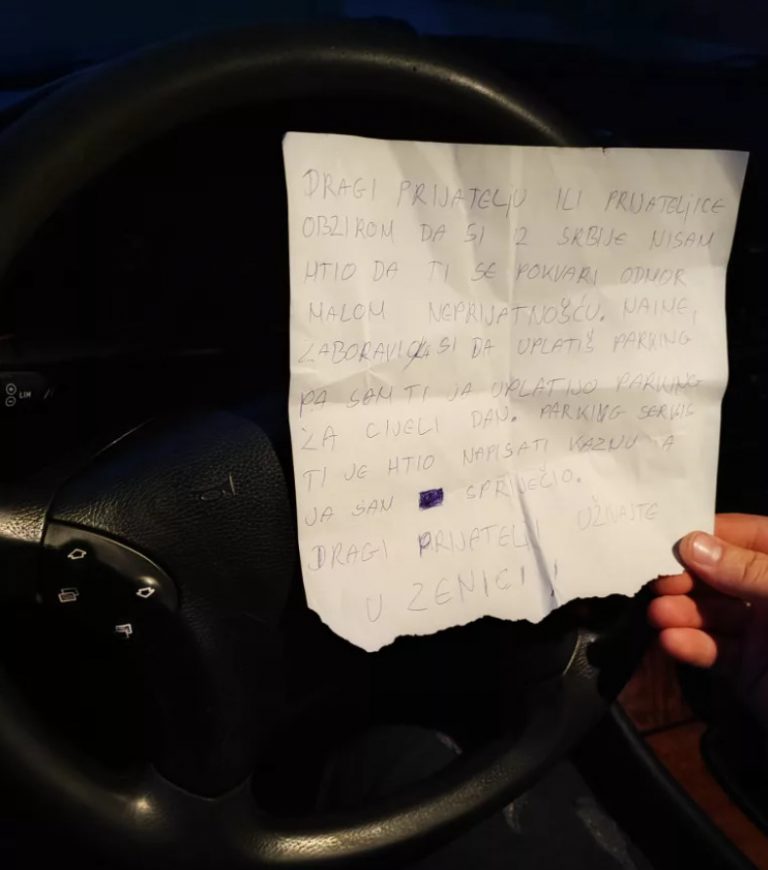 LIM
DRAGI PRIJATELJU ILI PRIJATELJICE
OBZIROM DA SI Z SRBIJE NISAM
HTIO DA TI SE POKVARI ODMOR
MALOM NEPRIJATNOŠĆU. NAIME,
ZABORAVIO SI DA UPLATIŠ PARKING
PA SAM TI JA UPLATIJO PARKING
ZA CIJELI DAN. PARKING SERVIS
TI JE HTIO NAPISATI KAZNU A
JA SAN SPRIJEČIO.
DRAGI PRIJATELJI UŽIVAJTE
U ZENICI!